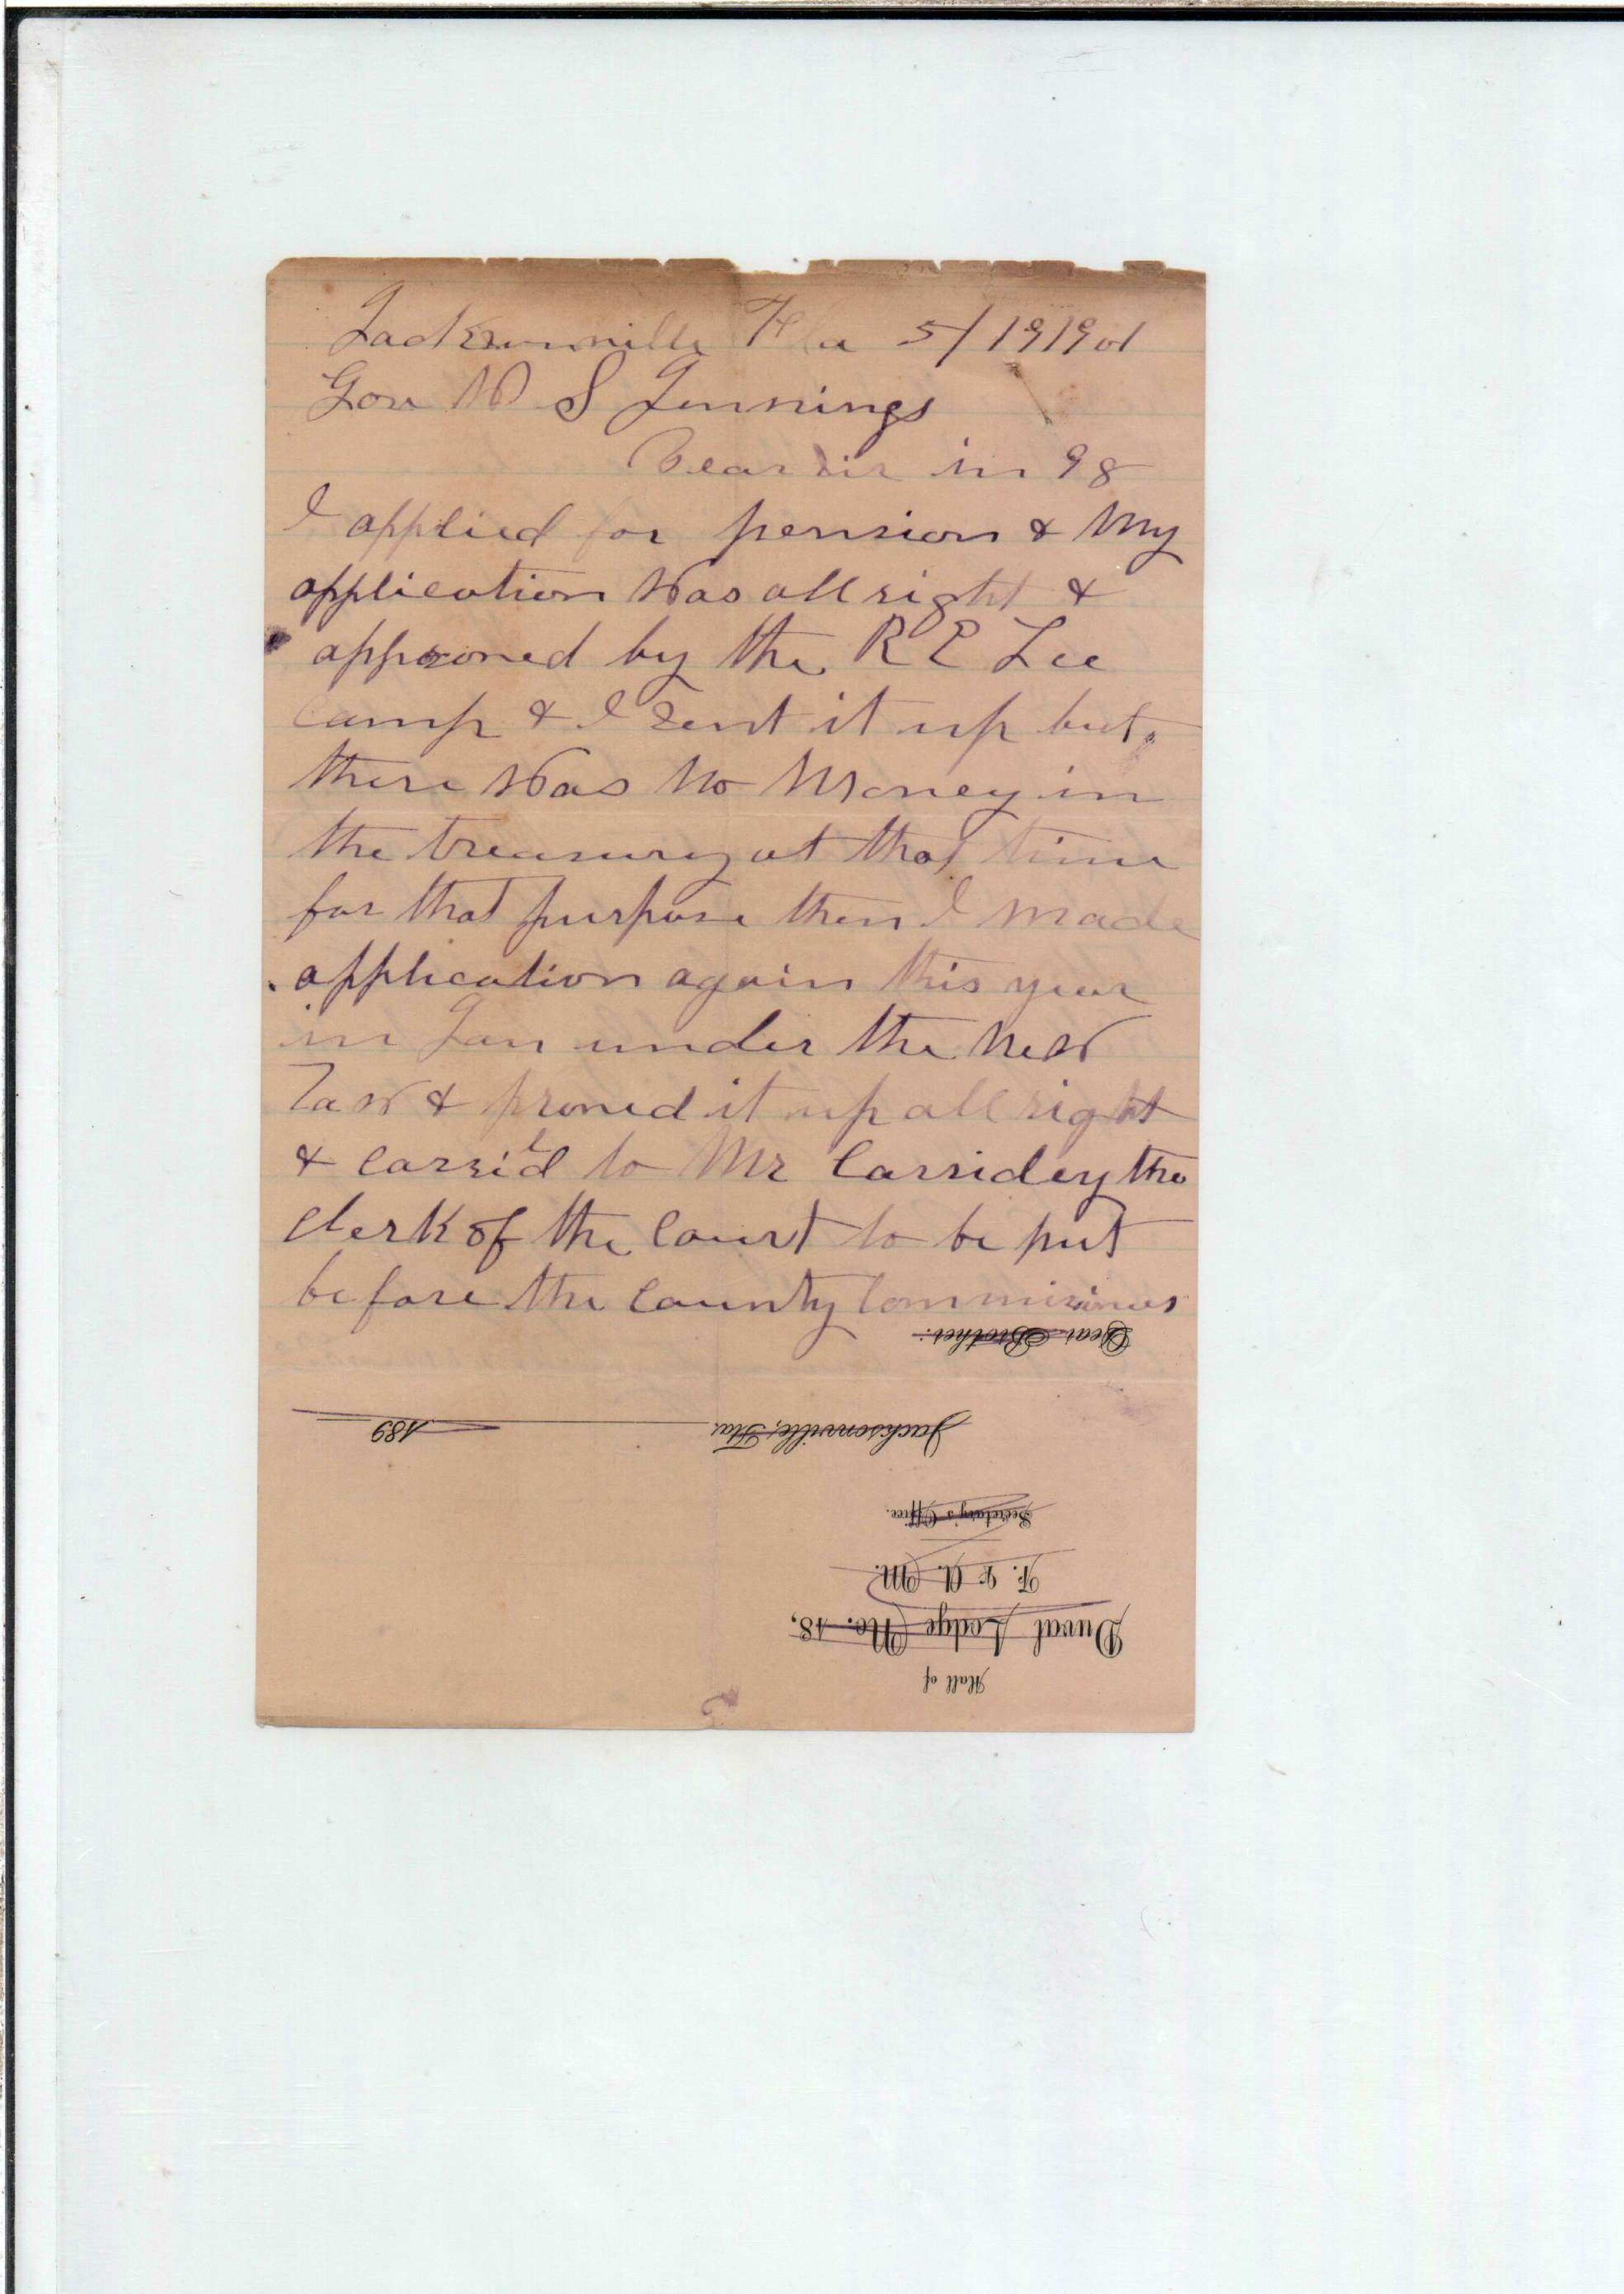 Jacksonville Fla 5/19 1901
Gov W S Jennings
Dear Sir in 98
I applied for pension & My
application Was all right &
approved by the R E Lee
Camp & I sent it up but
there Was No Money in
the treasury at that time
for that purpose then I made
application again this year
in Jan under the New
Law & proved it up all right
& carried to Mr Cassidey the
Clerk of the Court to be put
before the County
Dear Brother:
Jacksonville, Fla. 189
Secretary's Office.
F. & A. M.
Duval Lodge No. 18,
Hall of